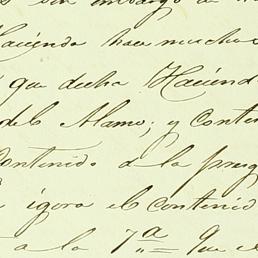 sin embargo de
Hacienda hace muchos
que dicha Haciend
del Alamo; y Conte
Contenido de la preg
igora el contenid
a la 7ª = Que el